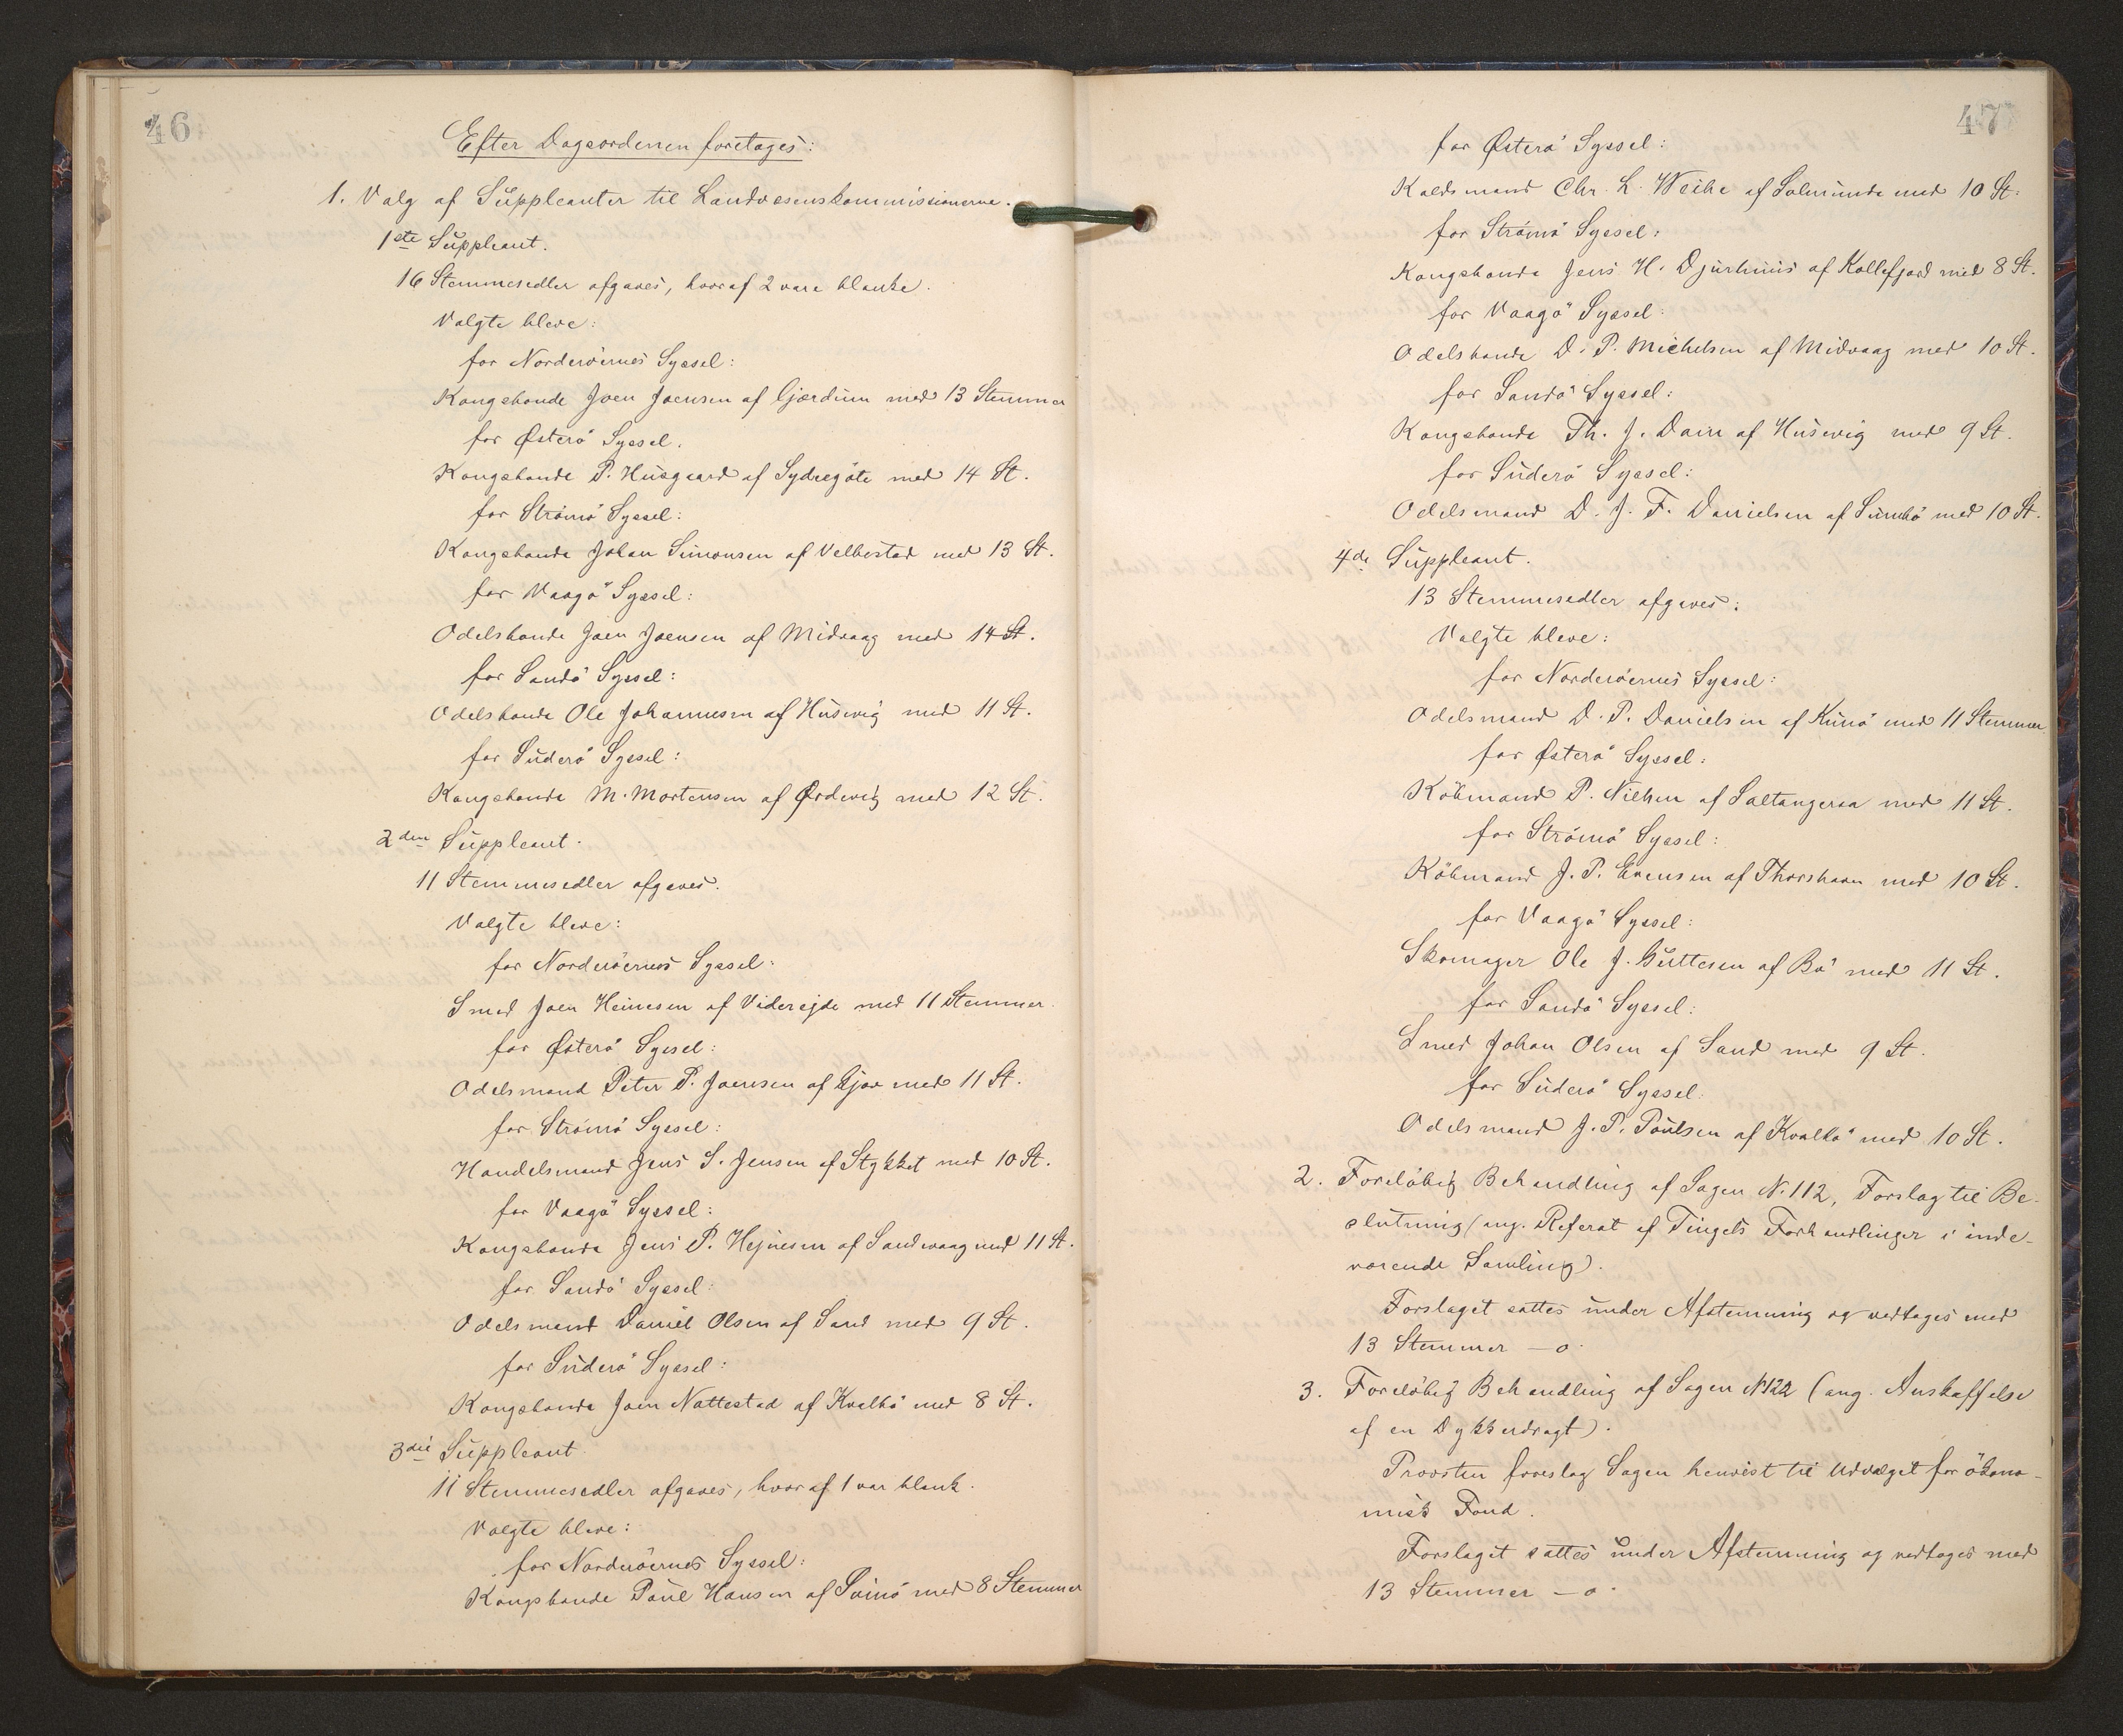 46
Efter Dagsordenen foretages:
1. Valg af Suppleanter til Landvæsenskommissionerne.
1ste Suppleant.
16 Stemmesedler afgaves, hvoraf 2 vare blanke.
Valgte bleve:
for Norderöernes Syssel:
Kongsbonde Joen Joensen af Gjærdum med 13 Stemmer
for Østerö Syssel.
Kongsbonde P. Husgaard af Sydregöte med 14 St.
for Strömö Syssel:
Kongsbonde Johan Simonsen af Velbestad med 13 St.
for Vaagö Syssel:
Odelsbonde Joen Joensen af Midvaag med 14 St.
for Sandö Syssel:
Odelsbonde Ole Johannesen af Husevig med 11 St.
for Suderö Syssel:
Kongsbonde M. Mortensen af Ørdevig med 12 St.
2den Suppleant.
11 Stemmesedler afgaves.
Valgte bleve:
for Norderöernes Syssel:
Smed Joen Heinesen af Viderejde med 11 Stemmer.
for Østerö Syssel:
Odelsmand Peter P. Joensen af Gjov med 11 St.
for Strömö Syssel:
Handelsmand Jens S. Jensen af Stykket med 10 St.
for Vaagö Syssel:
Kongsbonde Jens P. Hejnesen af Sandevaag med 11 St.
for Sandö Syssel:
Odelsmand Daniel Olsen af Sand med 9 St.
for Suderö Syssel:
Kongsbonde Joen Nattestad af Kvalbö med 8 St.
3die Suppleant.
11 Stemmesedler afgaves, hvoraf 1 var blank.
Valgte bleve:
for Norderöernes Syssel:
Kongsbonde Poul Hansen af Svinö med 8 Stemmer
47
for Østerö Syssel:
Kaldsmand Chr. L. Weihe af Solmunde med 10 St.
for Strömö Syssel:
Kongsbonde Jens H. Djurhuus af Kollefjord med 8 St.
for Vaagö Syssel:
Odelsbonde D. P. Michelsen af Midvaag med 10 St.
for Sandö Syssel:
Kongsbonde Th. J. Dam af Husevig med 9 St.
for Suderö Syssel:
Odelsmand D. J. F. Danielsen af Sumbö med 10 St.
4de Suppleant.
13 Stemmesedler afgaves:
Valgte bleve:
for Norderöernes Syssel:
Odelsmand D. P. Danielsen af Kunö med 11 Stemmer
for Østerö Syssel:
Köbmand P. Nielsen af Saltangeraa med 11 St.
for Strömö Syssel:
Köbmand J. P. Evensen af Thorshavn med 10 St.
for Vaagö Syssel:
Skomager Ole J. Guttesen af Bö med 11 St.
for Sandö Syssel:
Smed Johan Olsen af Sand med 9 St.
for Suderö Syssel:
Odelsmand J. P. Poulsen af Kvalbö med 10 St.
2. Foreløbig Behandling af Sagen N. 112, Forslag til Be-
slutning (ang. Referat af Tingets Forhandlinger i inde-
værende Samling).
Forslaget sattes under Afstemning og vedtages med
13 Stemmer – 0.
3. Foreløbig Behandling af Sagen N. 122 (ang. Anskaffelse
af en Dykkerdragt).
Provsten foreslog Sagen henvist til Udvalget for ökono-
misk Fond.
Forslaget sattes under Afstemning og vedtages med
13 Stemmer – 0.